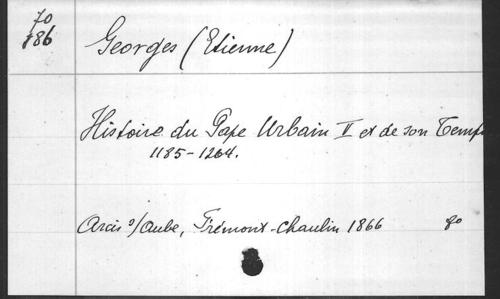 70
186
Georges (Etienne)
Histoire du Pape Urbain II et de son Temps
1185-1264.
Arcis s/Aube, Frémont-Chaulin 1866 80